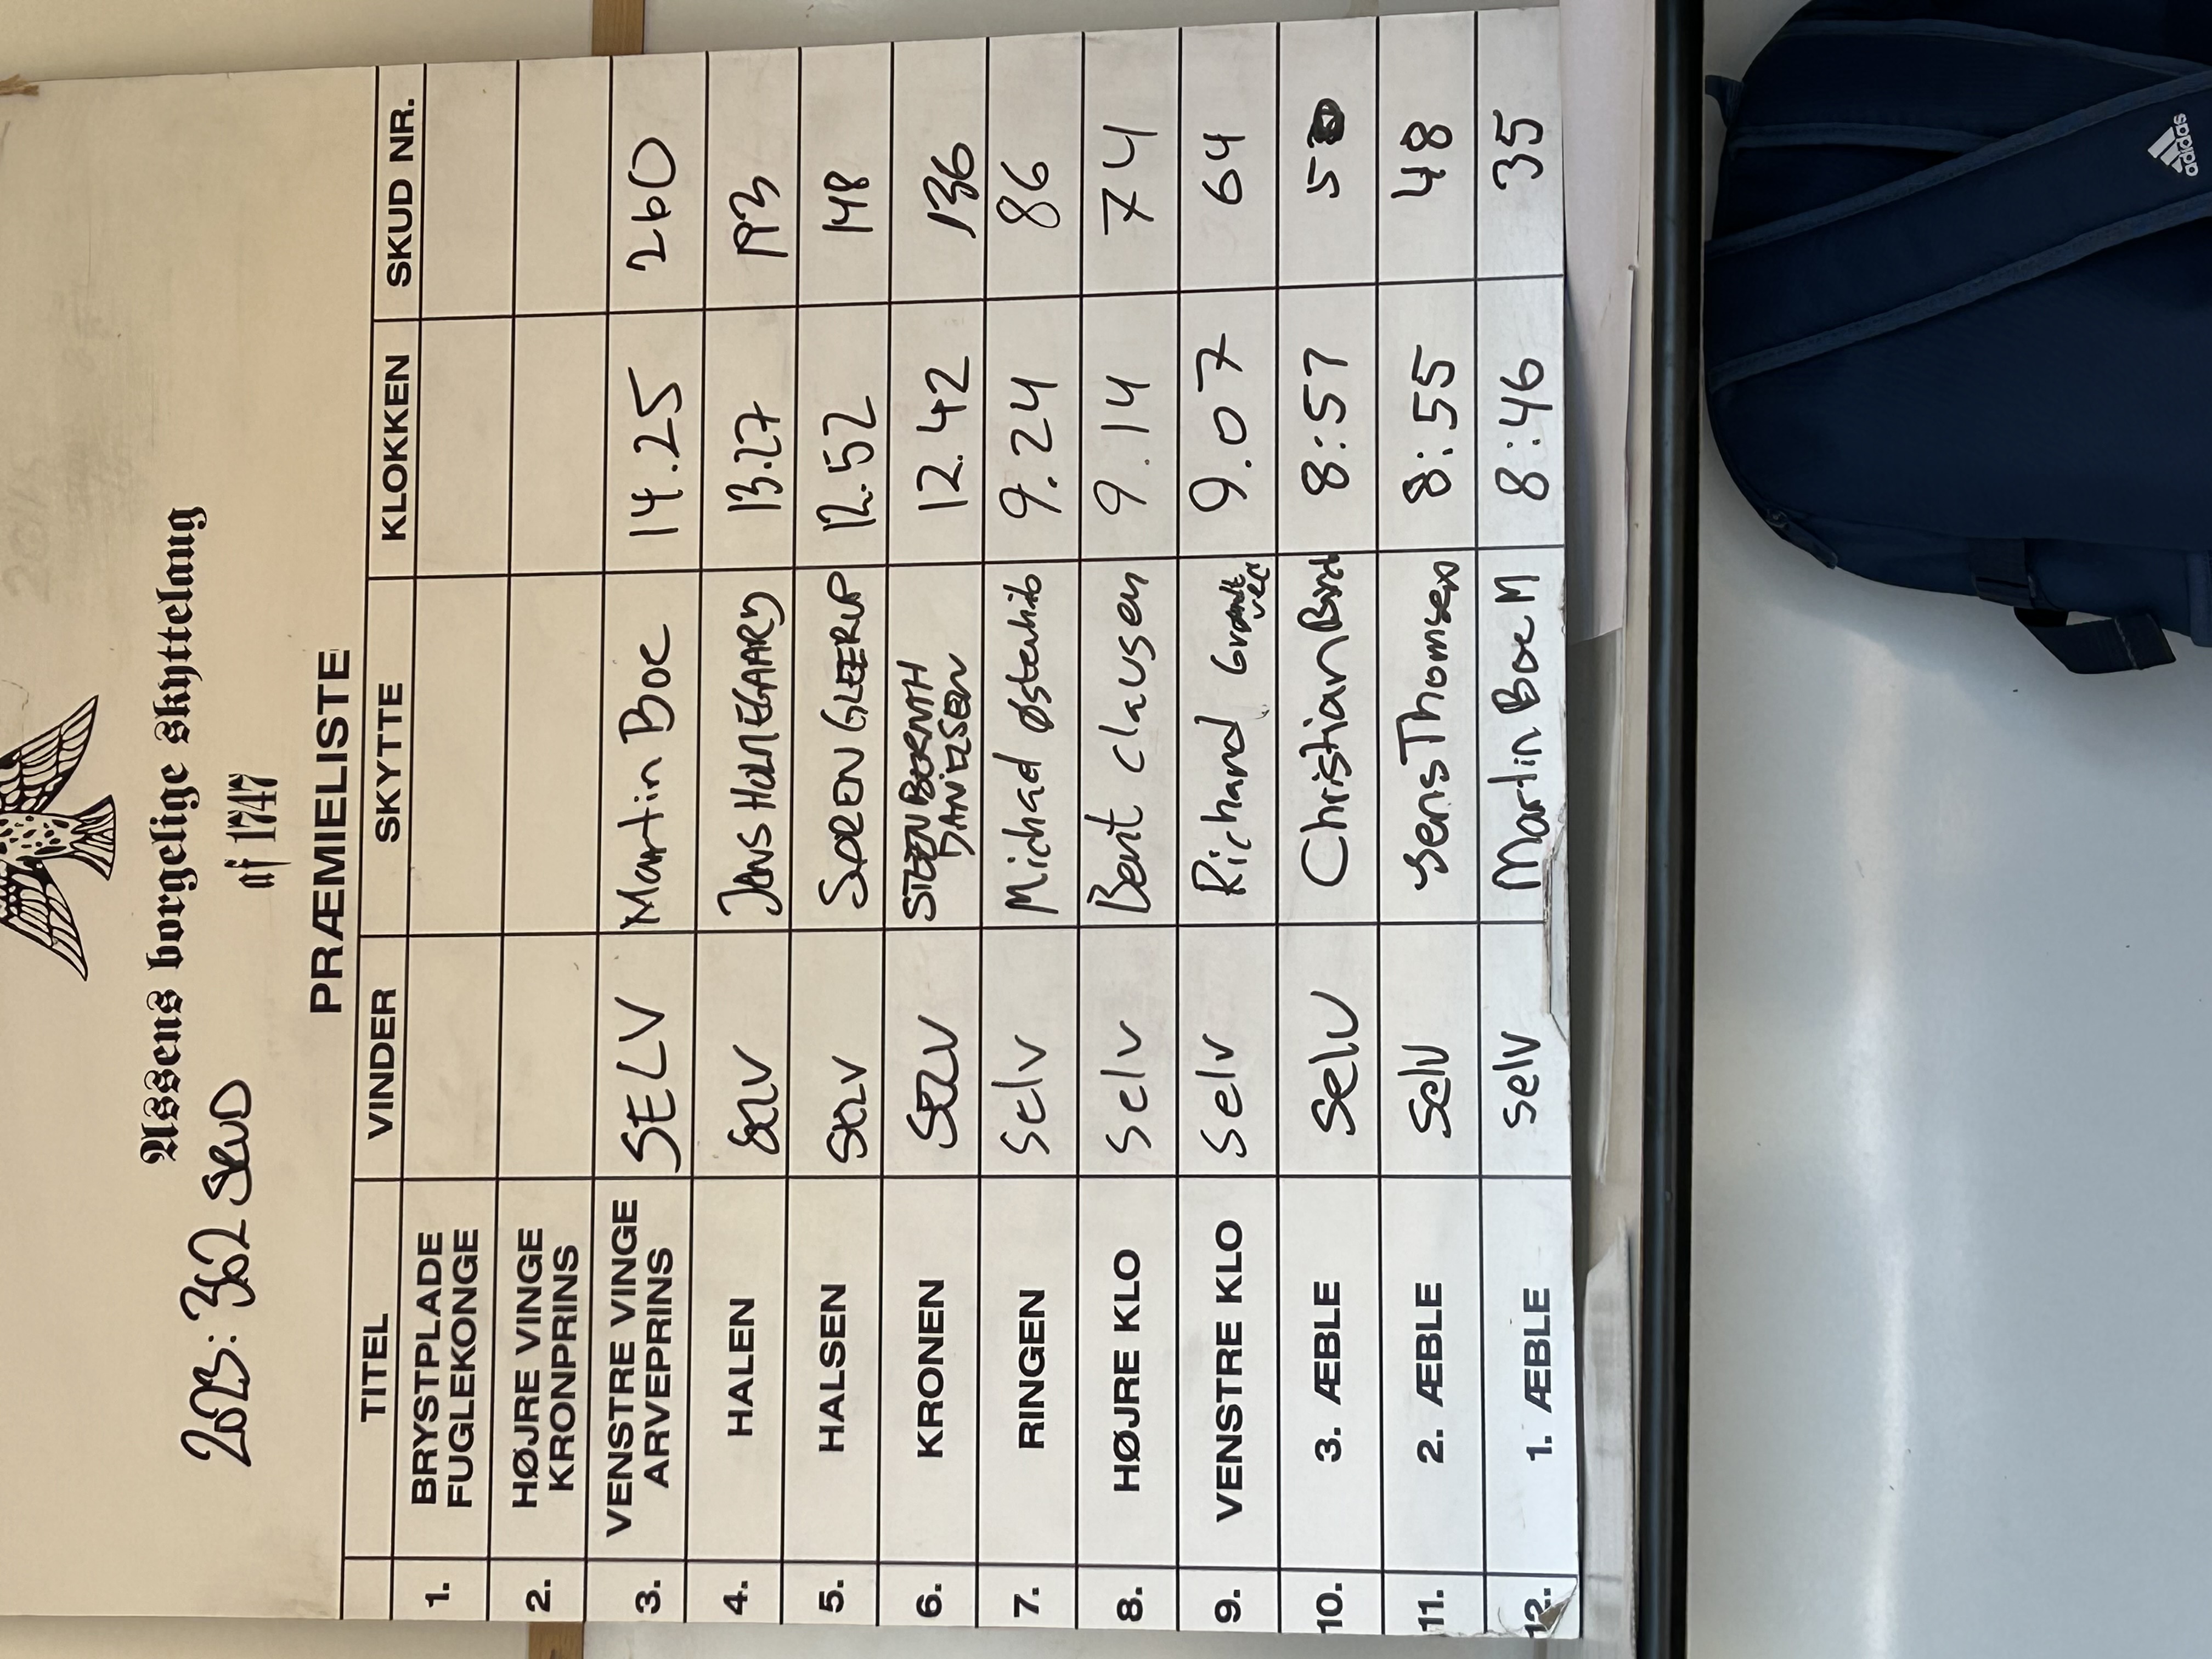 Assens borgelige Skyttelaug
af 1747
2023: 362 SKUD
PRÆMIELISTE
TITEL VINDER SKYTTE KLOKKEN SKUD NR.
1. BRYSTPLADE FUGLEKONGE
2. HØJRE VINGE KRONPRINS
3. VENSTRE VINGE ARVEPRINS SELV Martin Boe 14.25 260
4. HALEN SELV JENS HOLMEGAARD 13.27 193
5. HALSEN SELV SØREN GLEERUP 12.52 148
6. KRONEN SELV STEEN BERNTH DANIELSEN 12.42 136
7. RINGEN Selv Michael 9.24 86
8. HØJRE KLO Selv Bent Clausen 9.14 74
9. VENSTRE KLO Selv Richard 9.07 64
10. 3. ÆBLE Selv Christian 8:57
11. 2. ÆBLE Selv Jens Thomsen 8:55 48
12. 1. ÆBLE Selv Martin Boe M 8:46 35
adidas